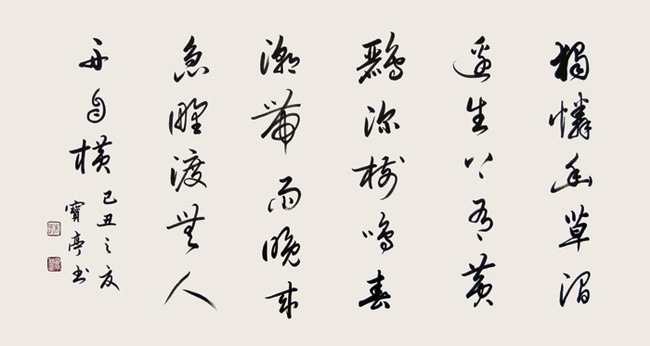 獨憐幽草澗
邊生上有黃
鸝深樹鳴春
潮帶雨晚來
急野渡無人
舟自橫
己丑之夏
寶亭书